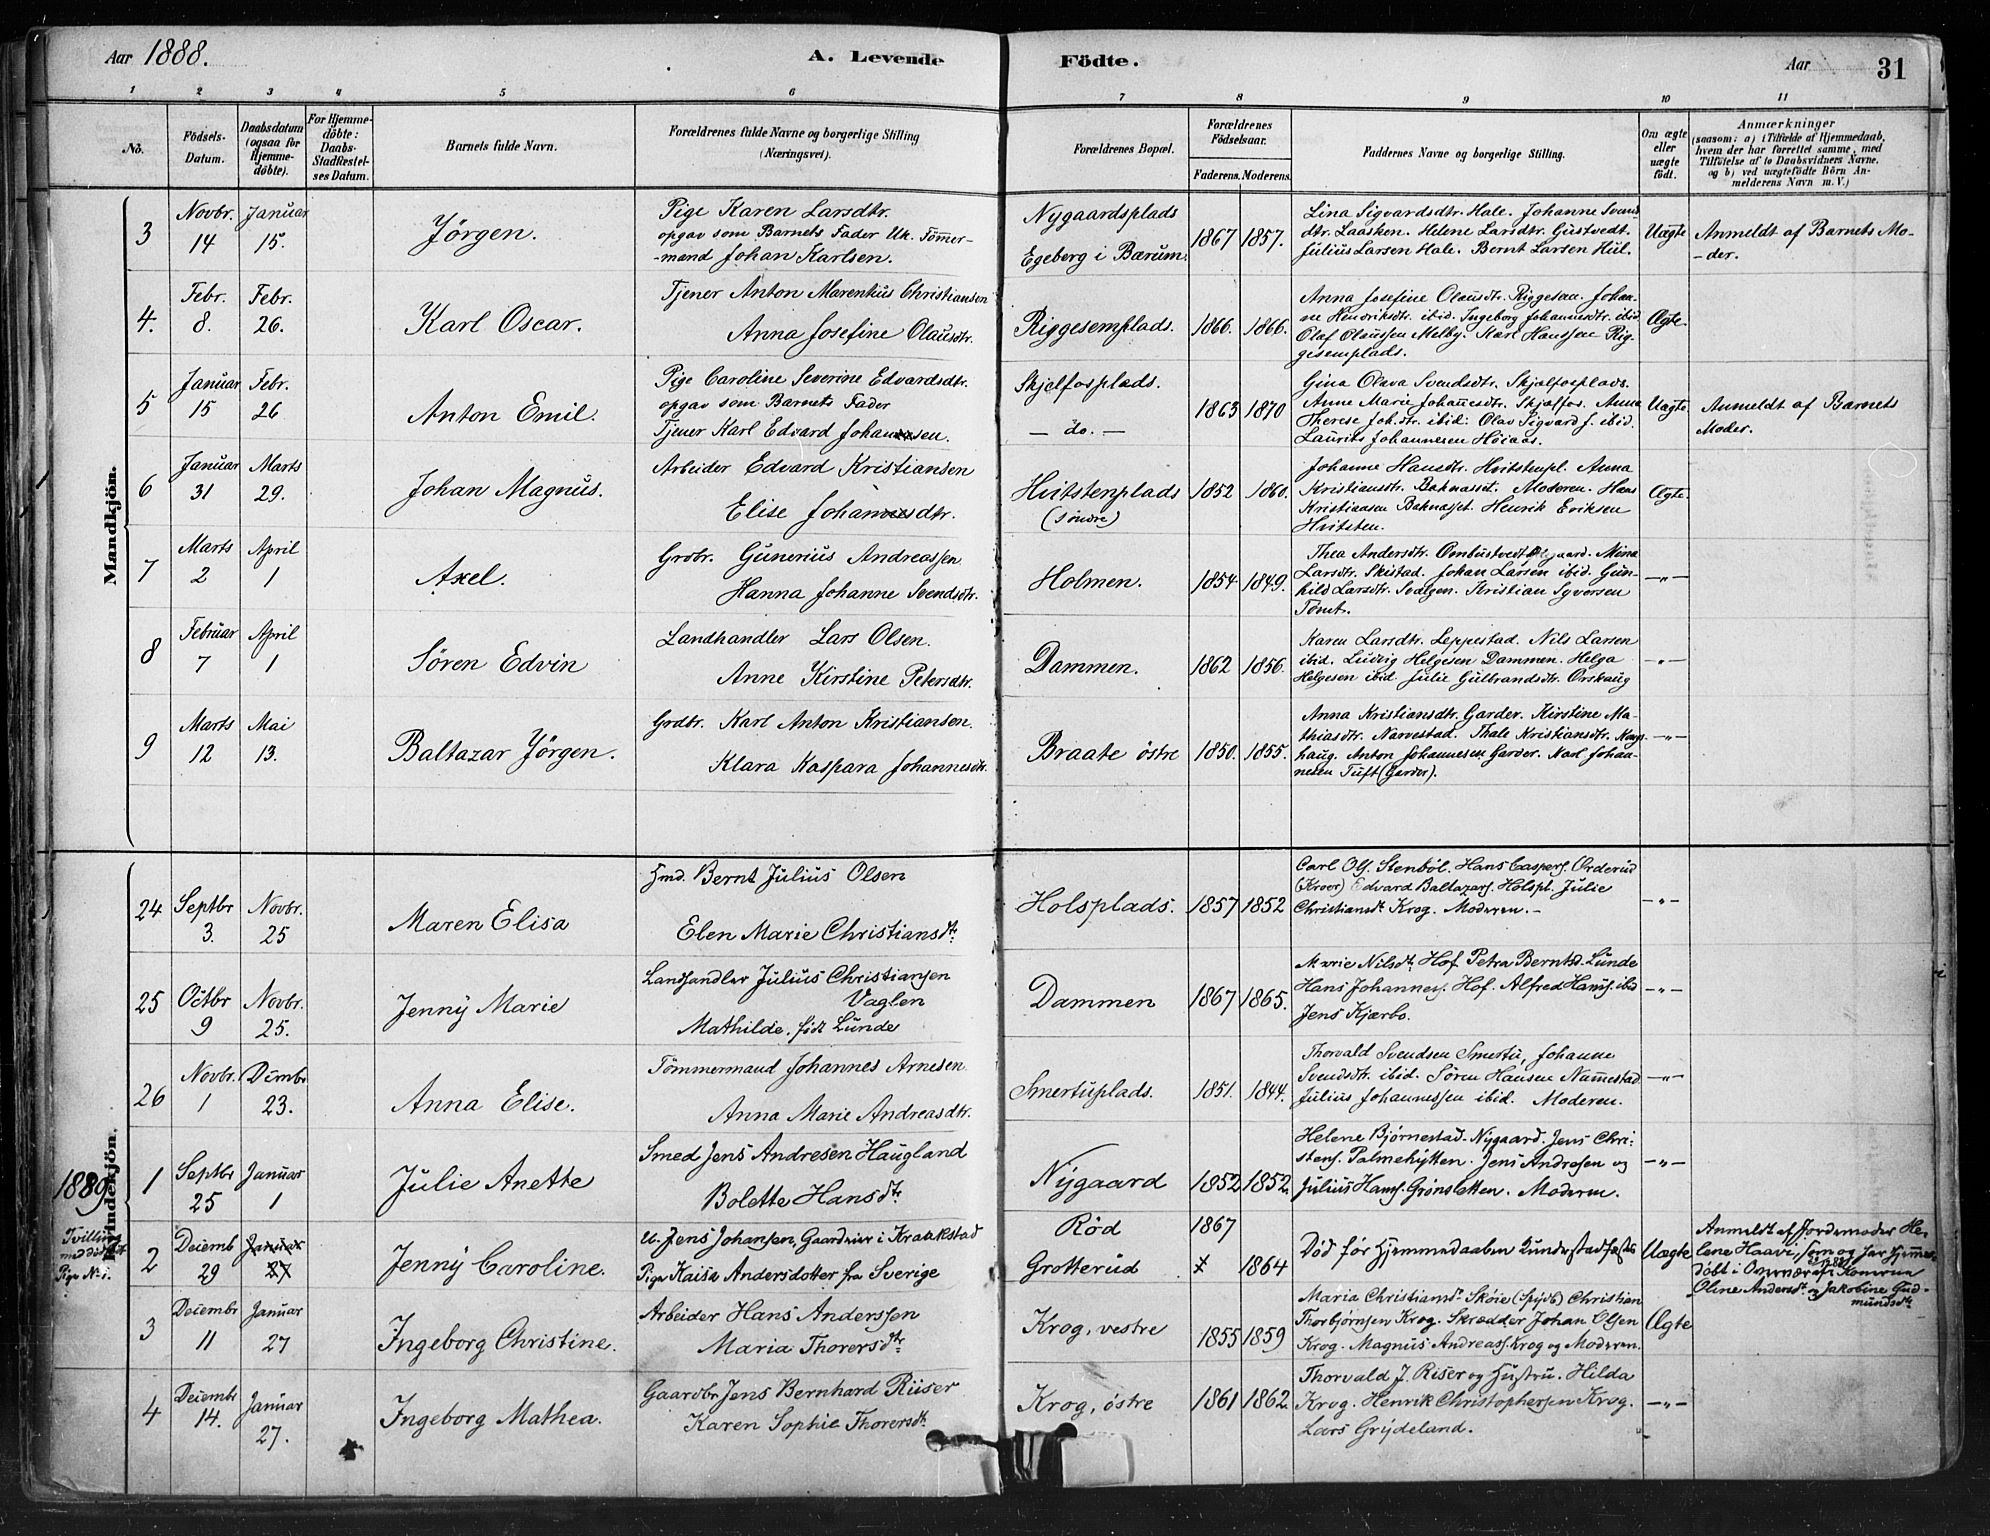 Aar 1888.
A. Levende Födte.
Aar
31
1 2 3 4 5 6 7 8 9 10 11
No.
Födsels-
Datum.
Daabsdatum
(ogsaa for
Hjemme-
döbte).
For Hjemme-
döbte:
Daabs-
Stadfæstel-
ses Datum.
Barnets fulde Navn.
Forældrenes fulde Navne og borgerlige Stilling
(Næringsvei).
Forældrenes Bopæl.
Forældrenes
Födselsaar.
Faderens. Moderens.
Faddernes Navne og borgerlige Stilling.
Om ægte
eller
uægte
födt.
Anmærkninger
(saasom: a) i Tilfælde af Hjemmedaab,
hvem der har forrettet samme, med
Tilföielse af to Daabsvidners Navne,
og b) ved uægtefödte Börn An-
melderens Navn m. V.)
Mandkjön.
3
Novbr.
14
Januar
15.
Jörgen.
Pige Karen Larsdtr.
opgav som Barnets Fader Uk. Tömmer-
-mand Johan Karlsen.
Nygaardsplads
Egeberg i Bærum.
1867 1857.
Lina Sigvardsdtr. Hale. Johanne Svends
dtr. Laasken. Helene Larsdtr. Gustvedt.
Julius Larsen Hale. Bernt Larsen Hul.
Uægte
Anmeldt af Barnets Mo-
-der.
4.
Febr.
8.
Febr.
26.
Karl Oscar.
Tjener Anton Marenkus Christiansen
Anna Josefine Olausdtr.
Riggesemplads.
1866. 1866.
Anna Josefine Olausdtr. Riggesem. Johan-
ne Henriksdtr. ibid. Ingeborg Johannesdtr. ibid
Olaf Olaussen Melby. Karl Hanssen Rig-
gesemplads.
Ægte.
5
Januar
15
Febr.
26
Anton Emil.
Pige Caroline Severine Edvardsdtr.
opgav som Barnets Fader
Tjener Karl Edvard Johansen.
Skjelfosplads.
— do. —
1863 1870
Gina Olava Svendsdtr. Skjælfosplads.
Anne Marie Johannesdtr. Skjælfos. Anna
Therese Joh.dtr. ibid: Olav Sigvard J. ibid.
Laurits Johannesen Höiaas.
Uægte
Anmeldt af Barnets
Moder.
6
Januar
31
Marts
29.
Johan Magnus.
Arbeider Edvard Kristiansen
Elise Johannesdtr.
Hvitstenplads
(söndre)
1852 1860.
Johanne Hansdtr. Hvitstenpl. Anna
Kristiansdtr. Baknasset. Moderen. Hans
Kristiansen Baknasset. Henrik Eriksen
Hvitsten.
Ægte.
7
Marts
2
April
1
Axel.
Grdbr. Gunerius Andreassen
Hanna Johanne Svendsdtr.
Holmen.
1854. 1849.
Thea Andersdtr. Ombustvedt Mina
Larsdtr. Skistad. Johan Larsen ibid. Gun-
hild Larsdtr. Svalgen. Kristian Syversen
Tomt.
—„—
8
Februar
7
April
1
Sören Edvin
Landhandler Lars Olsen.
Anne Kirstine Petersdtr.
Dammen.
1862 1856.
Karen Larsdtr. Leppestad. Nils Larsen
ibid. Ludvig Helgesen Dammen. Helga
Helgesen ibid Julie Gulbrandsdtr. Orskaug
—„—
9
Marts
12
Mai
13.
Baltazar Jörgen.
Grdbr. Karl Anton Kristiansen.
Klara Kaspara Johannesdtr.
Braate östre
1850. 1855.
Anna Kristiansdtr. Garder. Kirstine Ma-
thiasdtr. Narvestad. Thale Kristiansdtr.
haug. Anton Johannesen Garder. Karl Johan-
nesen Tuft (Garder).
—„—
Kvindekjön.
24
Septbr
3.
Novbr.
25
Maren Elisa
Hmd. Bernt Julius Olsen
Elen Marie Christiansdtr
Holsplads.
1857 1852
Carl Ols. Stenböl. Hans Caspers. Orderud
(Kroer) Edvard Baltazars. Holspl. Julie
Christiansdtr Krog. Moderen. —
—„—
25
Octbr
9
Novbr.
25.
Jenny Marie
Landhandler Julius Christiansen
Vaglen
Mathilde, födt Lunde
Dammen
1867 1865.
Marie Nilsdtr Hof Petra Berntsd. Lunde
Hans Johannes. Hof. Alfred Hans. ibid
Jens Kjærbo.
—„—
26
Novbr.
1
Dcmbr
23.
Anna Elise.
Tömmermand Johannes Arnesen
Anna Marie Andreasdtr.
Smertuplads.
1851. 1844.
Thorvald Svendsen Smertu, Johanne
Svendsdtr. ibid. Sören Hansen Nammestad
Julius Johannessen ibid. Moderen.
—„—
1889
1
Septbr
25
Januar
1
Julie Anette
Smed Jens Andresen Haugland
Bolette Hansdtr
Nygaard
1852 1852.
Helene Bjørnestad. Nygaard. Jens Chri-
stens. Palmehytten. Jens Andresen og
Julius Hans. Grönsletten. Moderen.
—„—
Tvilling
med
Pige No. 1.
2
Decemb
29
Januar
27
Jenny Caroline.
U. Jens Johansen, Gaardeier i Kraakstad
Pige Kaisa Andersdotter fra Sverige
Röd
Grotterud
1867
1864
Död för Hjemmedaaben kunde stadfæstes
Uægte
Anmeldt af Jordemoder He-
lene Haavi, som og har hjemme-
döbt i Overvær af Konerne
Oline Andersdtr og Jakobine Gud-
mundsdtr
3
Decembr
11
Januar
27
Ingeborg Christine.
Arbeider Hans Anderssen
Maria Thorersdtr
Krog, vestre
1855 1859
Maria Christiansdtr Skøie (Spydb) Christian
Thorbjørnsen Krog. Skrædder Johan Olsen
Krog. Magnus Andreass. Krog og Moderen.
Ægte
4
Decembr
14.
Januar
27.
Ingeborg Mathea.
Gaardbr Jens Bernhard Riiser
Karen Sophie Thorersdtr
Krog, östre
1861 1862.
Thorvald J. Riser og Hustru. Hilda
Krog. Henrik Christophersen Krog.
Lars Grydeland.
—„—